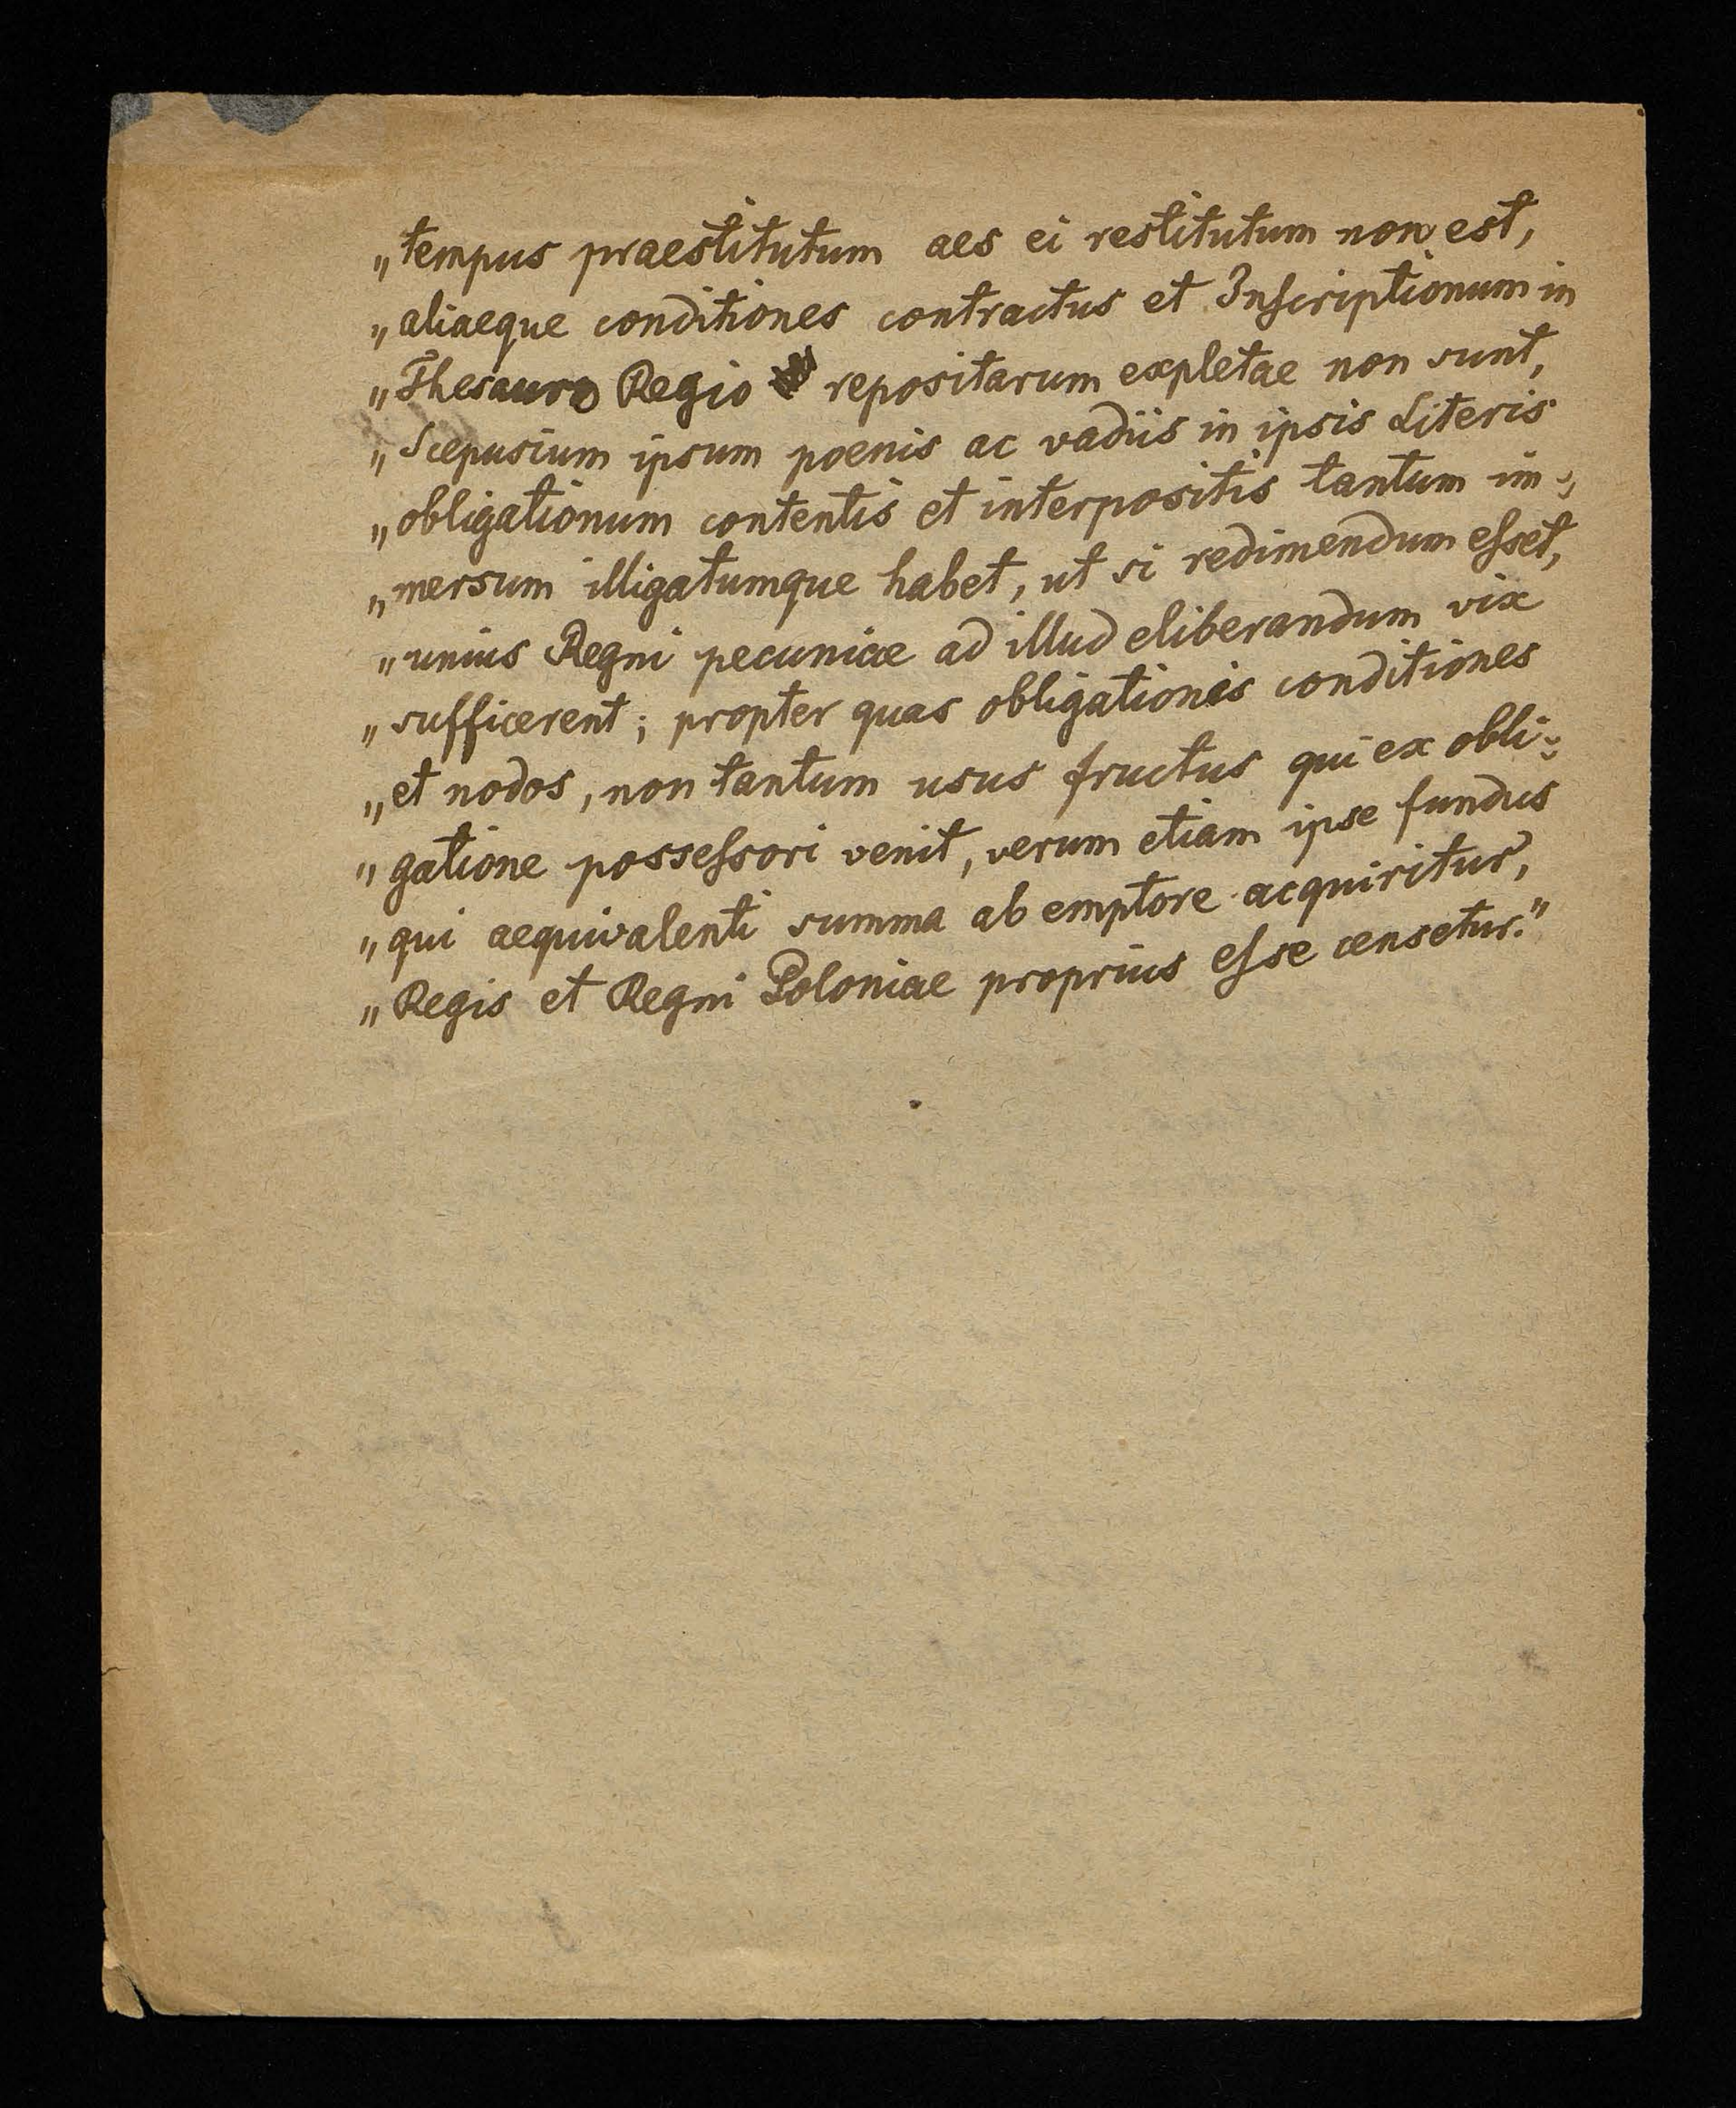 „tempus praestitutum aes ei restitutum non est,
„aliaeque conditiones contractus et Inscriptionum in
„Thesauro Regio repositarum expletae non sunt,
„Scepusium ipsum poenis ac vadiis in ipsis Literis
„obligationum contentis et interpositis tantum im-
„mersum illigatumque habet, ut si redimendum esset,
„unius Regni pecuniae ad illud eliberandum vix
„sufficerent; propter quas obligationis conditiones
„et nodos, non tantum usus fructus qui ex obli-
„gatione possessori venit, verum etiam ipse fundus
„qui aequivalenti summa ab emptore acquiritur,
„Regis et Regni Poloniae proprius esse censetur."